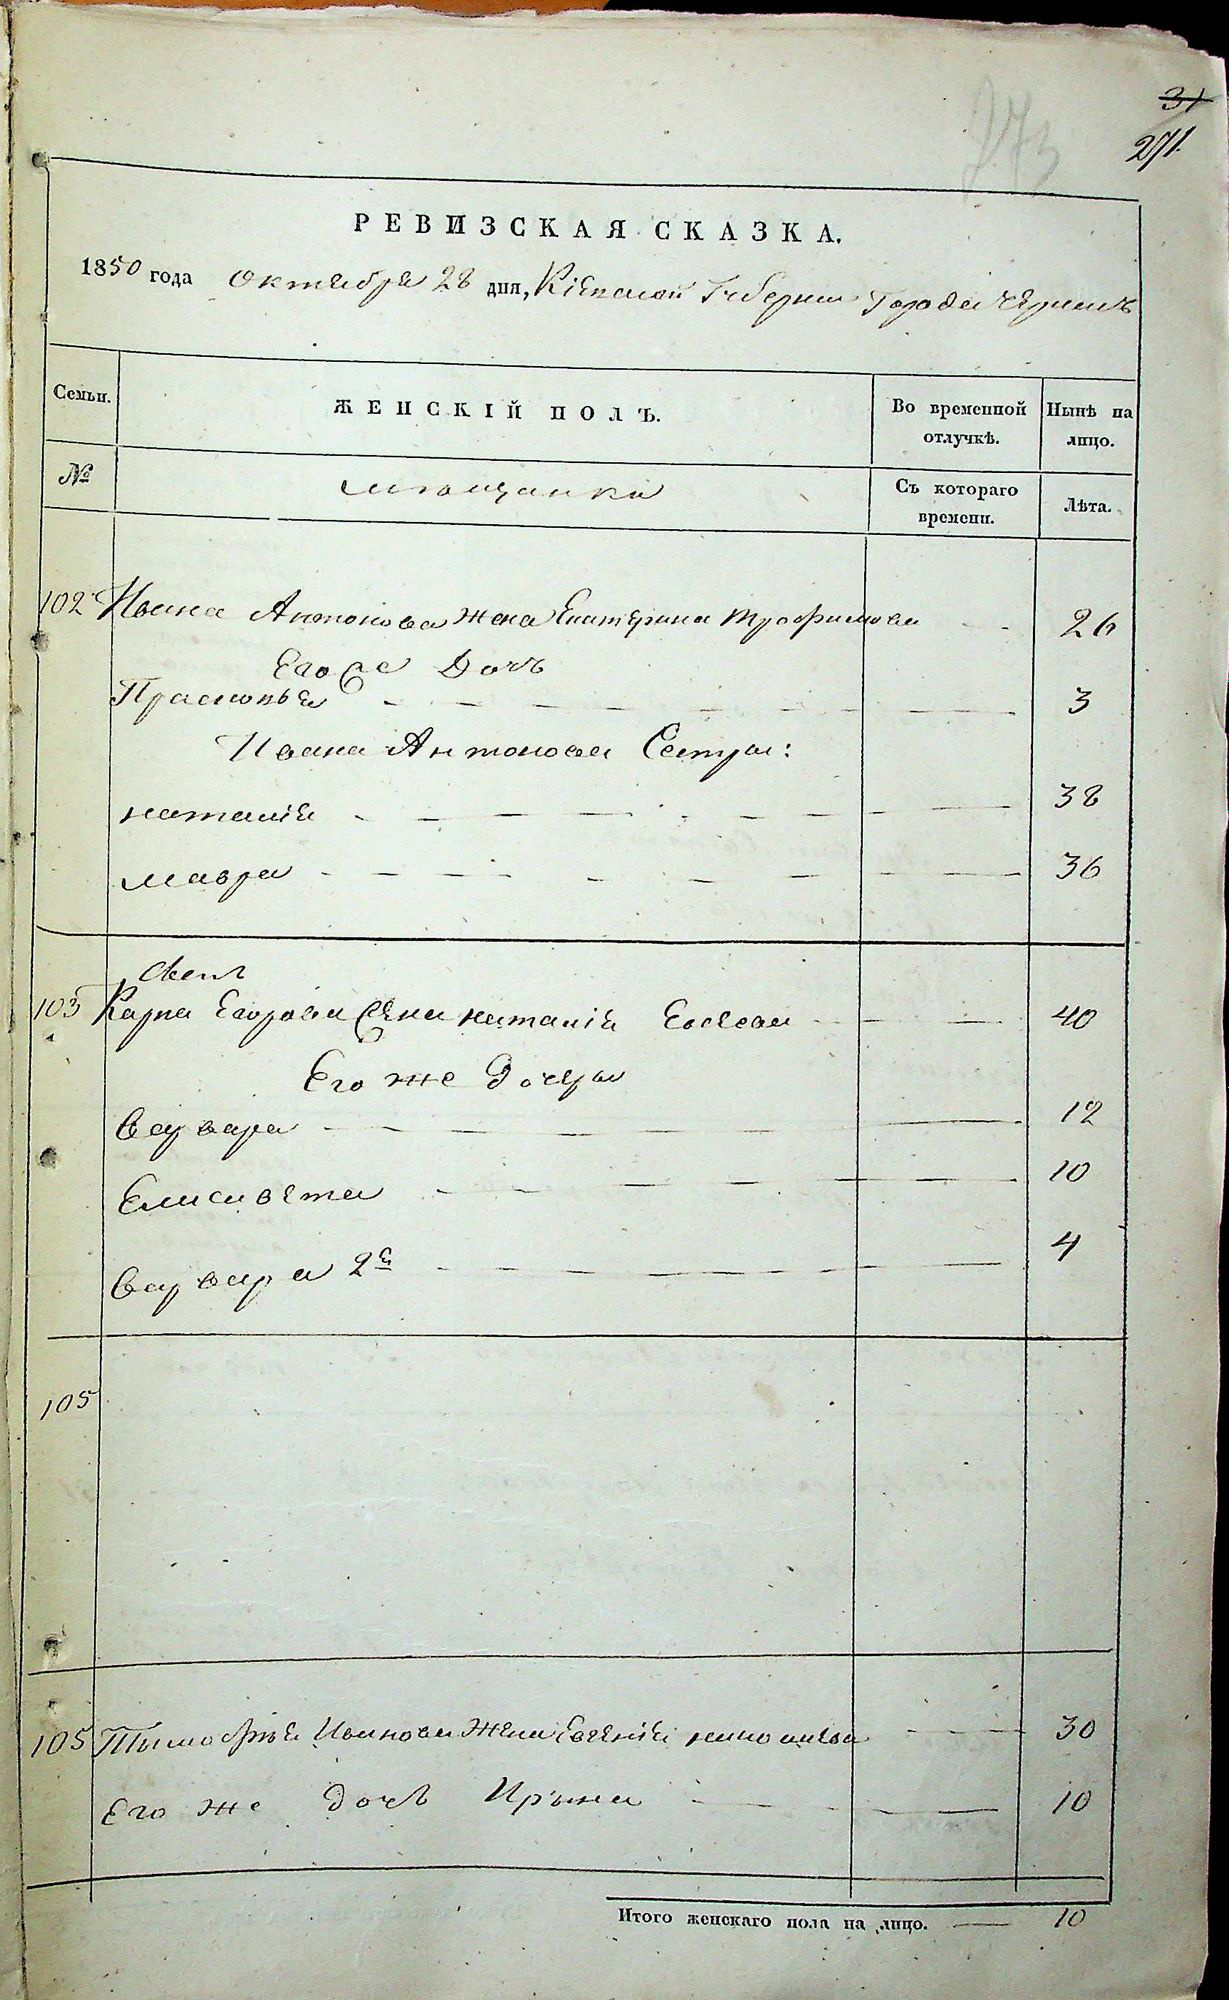 31
271.
273
РЕВИЗСКАЯ СКАЗКА.
1850 года октября 28 дня, Кіевской Губерніи Города
Семьи. ЖЕНСКІЙ ПОЛЪ. Во временной отлучкѣ. Нынѣ на лицо.
№ мѣщанки Съ котораго времени. Лѣта.
102 Ивана Антонова жена Екатерина Трофимова 26
Его же Дочь
Прасковья 3
Ивана Антонова Сестры:
наталія 38
мавра 36
103 Карпа Егорова жена наталія 40
Его же дочеры
варвара 12
Елисавета 10
варвара 2я 4
105
105 Тымофѣя Иванова жена Евгенія 30
Его же дочь Ирына 10
Итого женскаго пола на лицо. 10